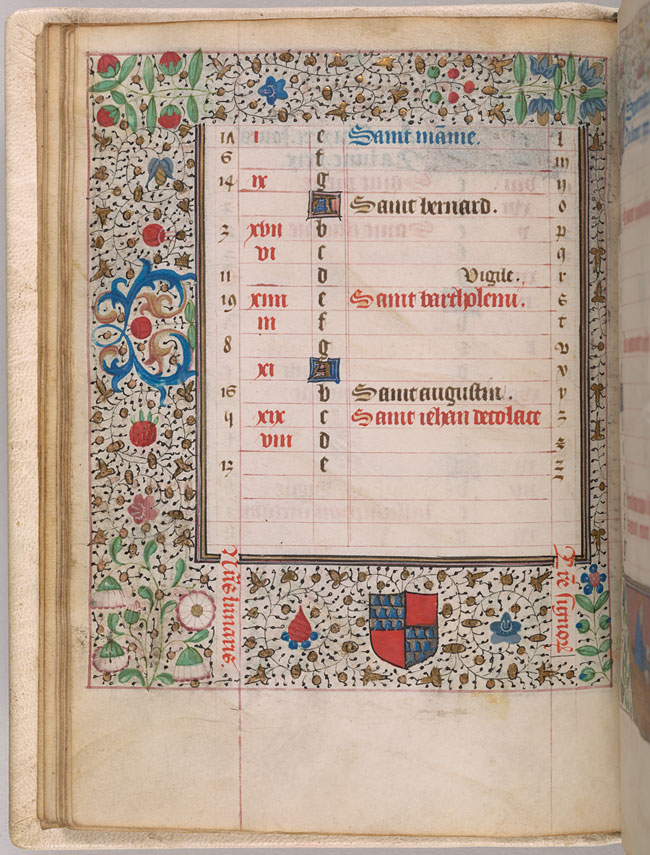 17 i c Saint mãme. l
6 f m
14 ix g n
A Saint bernard. o
3 xvii b p
vi c q
11 d Vigile. r
19 xiiii e Saint bartholemi. s
iii f t
8 g v
xi A
16 b Saint augustin.
4 xix c Saint iehan decolace
viii d
12 e